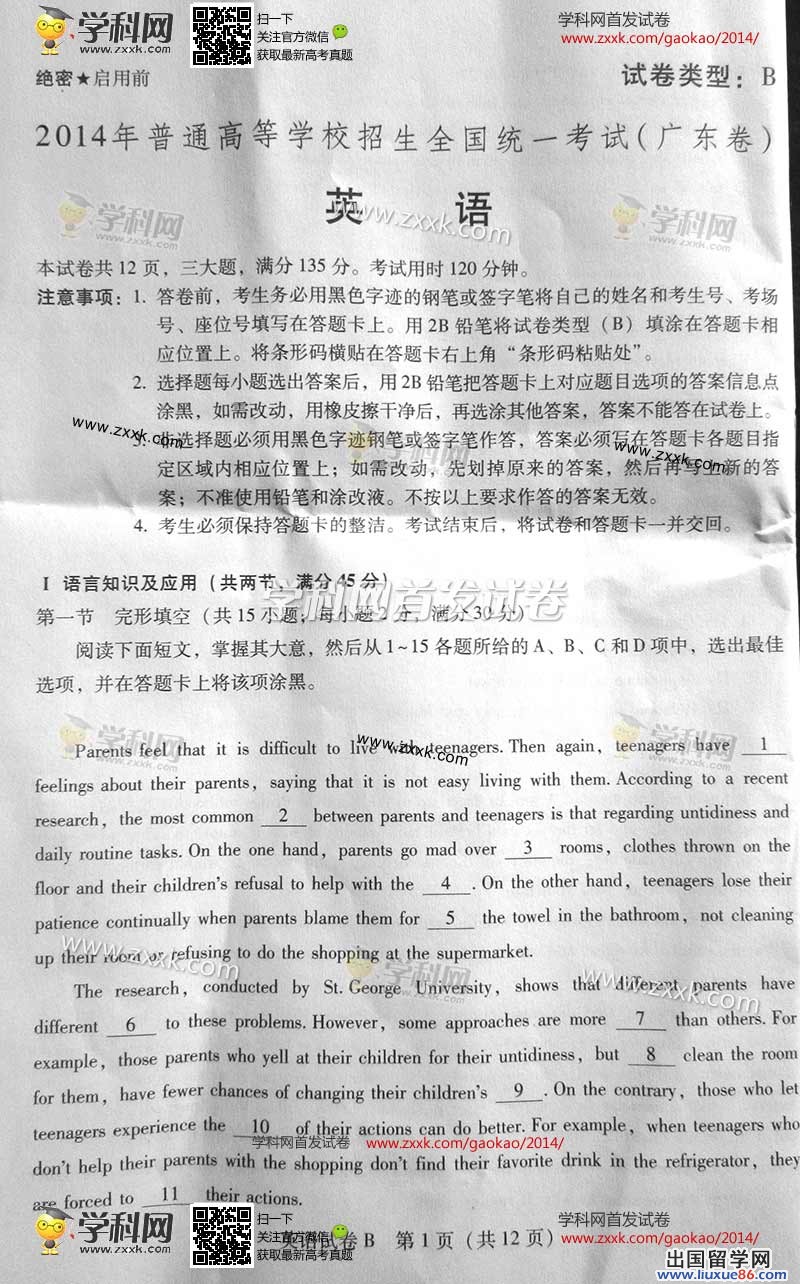 学科网
www.zxxk.com
扫一下
关注官方微信
获取最新高考真题
学科网首发试卷
www.zxxk.com/gaokao/2014/
绝密★启用前
试卷类型：B
2014年普通高等学校招生全国统一考试(广东卷)
英 语
学科网
www.zxxk.com
www.zxxk.com
学科网
www.zxxk.com
本试卷共12页，三大题，满分135分。考试用时120分钟。
注意事项：1. 答卷前，考生务必用黑色字迹的钢笔或签字笔将自己的姓名和考生号、考场
号、座位号填写在答题卡上。用2B铅笔将试卷类型（B）填涂在答题卡相
应位置上。将条形码横贴在答题卡右上角“条形码粘贴处”。
2. 选择题每小题选出答案后，用2B铅笔把答题卡上对应题目选项的答案信息点
涂黑，如需改动，用橡皮擦干净后，再选涂其他答案，答案不能答在试卷上。
www.zxxk.com
3. 非选择题必须用黑色字迹钢笔或签字笔作答，答案必须写在答题卡各题目指
学科网
www.zxxk.com
www.zxxk.com
定区域内相应位置上；如需改动，先划掉原来的答案，然后再写上新的答
案；不准使用铅笔和涂改液。不按以上要求作答的答案无效。
4. 考生必须保持答题卡的整洁。考试结束后，将试卷和答题卡一并交回。
I 语言知识及应用（共两节，满分45分）
学科网首发试卷
第一节 完形填空（共15小题；每小题2分，满分30分）
阅读下面短文，掌握其大意，然后从1~15各题所给的A、B、C和D项中，选出最佳
选项，并在答题卡上将该项涂黑。
学科网
www.zxxk.com
www.zxxk.com
学科网
www.zxxk.com
Parents feel that it is difficult to live with teenagers. Then again, teenagers have 1
feelings about their parents, saying that it is not easy living with them. According to a recent
research, the most common 2 between parents and teenagers is that regarding untidiness and
daily routine tasks. On the one hand, parents go mad over 3 rooms, clothes thrown on the
floor and their children's refusal to help with the 4 . On the other hand, teenagers lose their
patience continually when parents blame them for 5 the towel in the bathroom, not cleaning
up their room or refusing to do the shopping at the supermarket.
www.zxxk.com
学科网
www.zxxk.com
www.zxxk.com
The research, conducted by St. George University, shows that different parents have
different 6 to these problems. However, some approaches are more 7 than others. For
example, those parents who yell at their children for their untidiness, but 8 clean the room
for them, have fewer chances of changing their children's 9 . On the contrary, those who let
teenagers experience the 10 of their actions can do better. For example, when teenagers who
学科网首发试卷 www.zxxk.com/gaokao/2014/
don't help their parents with the shopping don't find their favorite drink in the refrigerator, they
are forced to 11 their actions.
学科网
www.zxxk.com
扫一下
关注官方微信
获取最新高考真题
学科网首发试卷
www.zxxk.com/gaokao/2014/
英语试卷B 第1页（共12页）
出国留学网
www.liuxue86.com